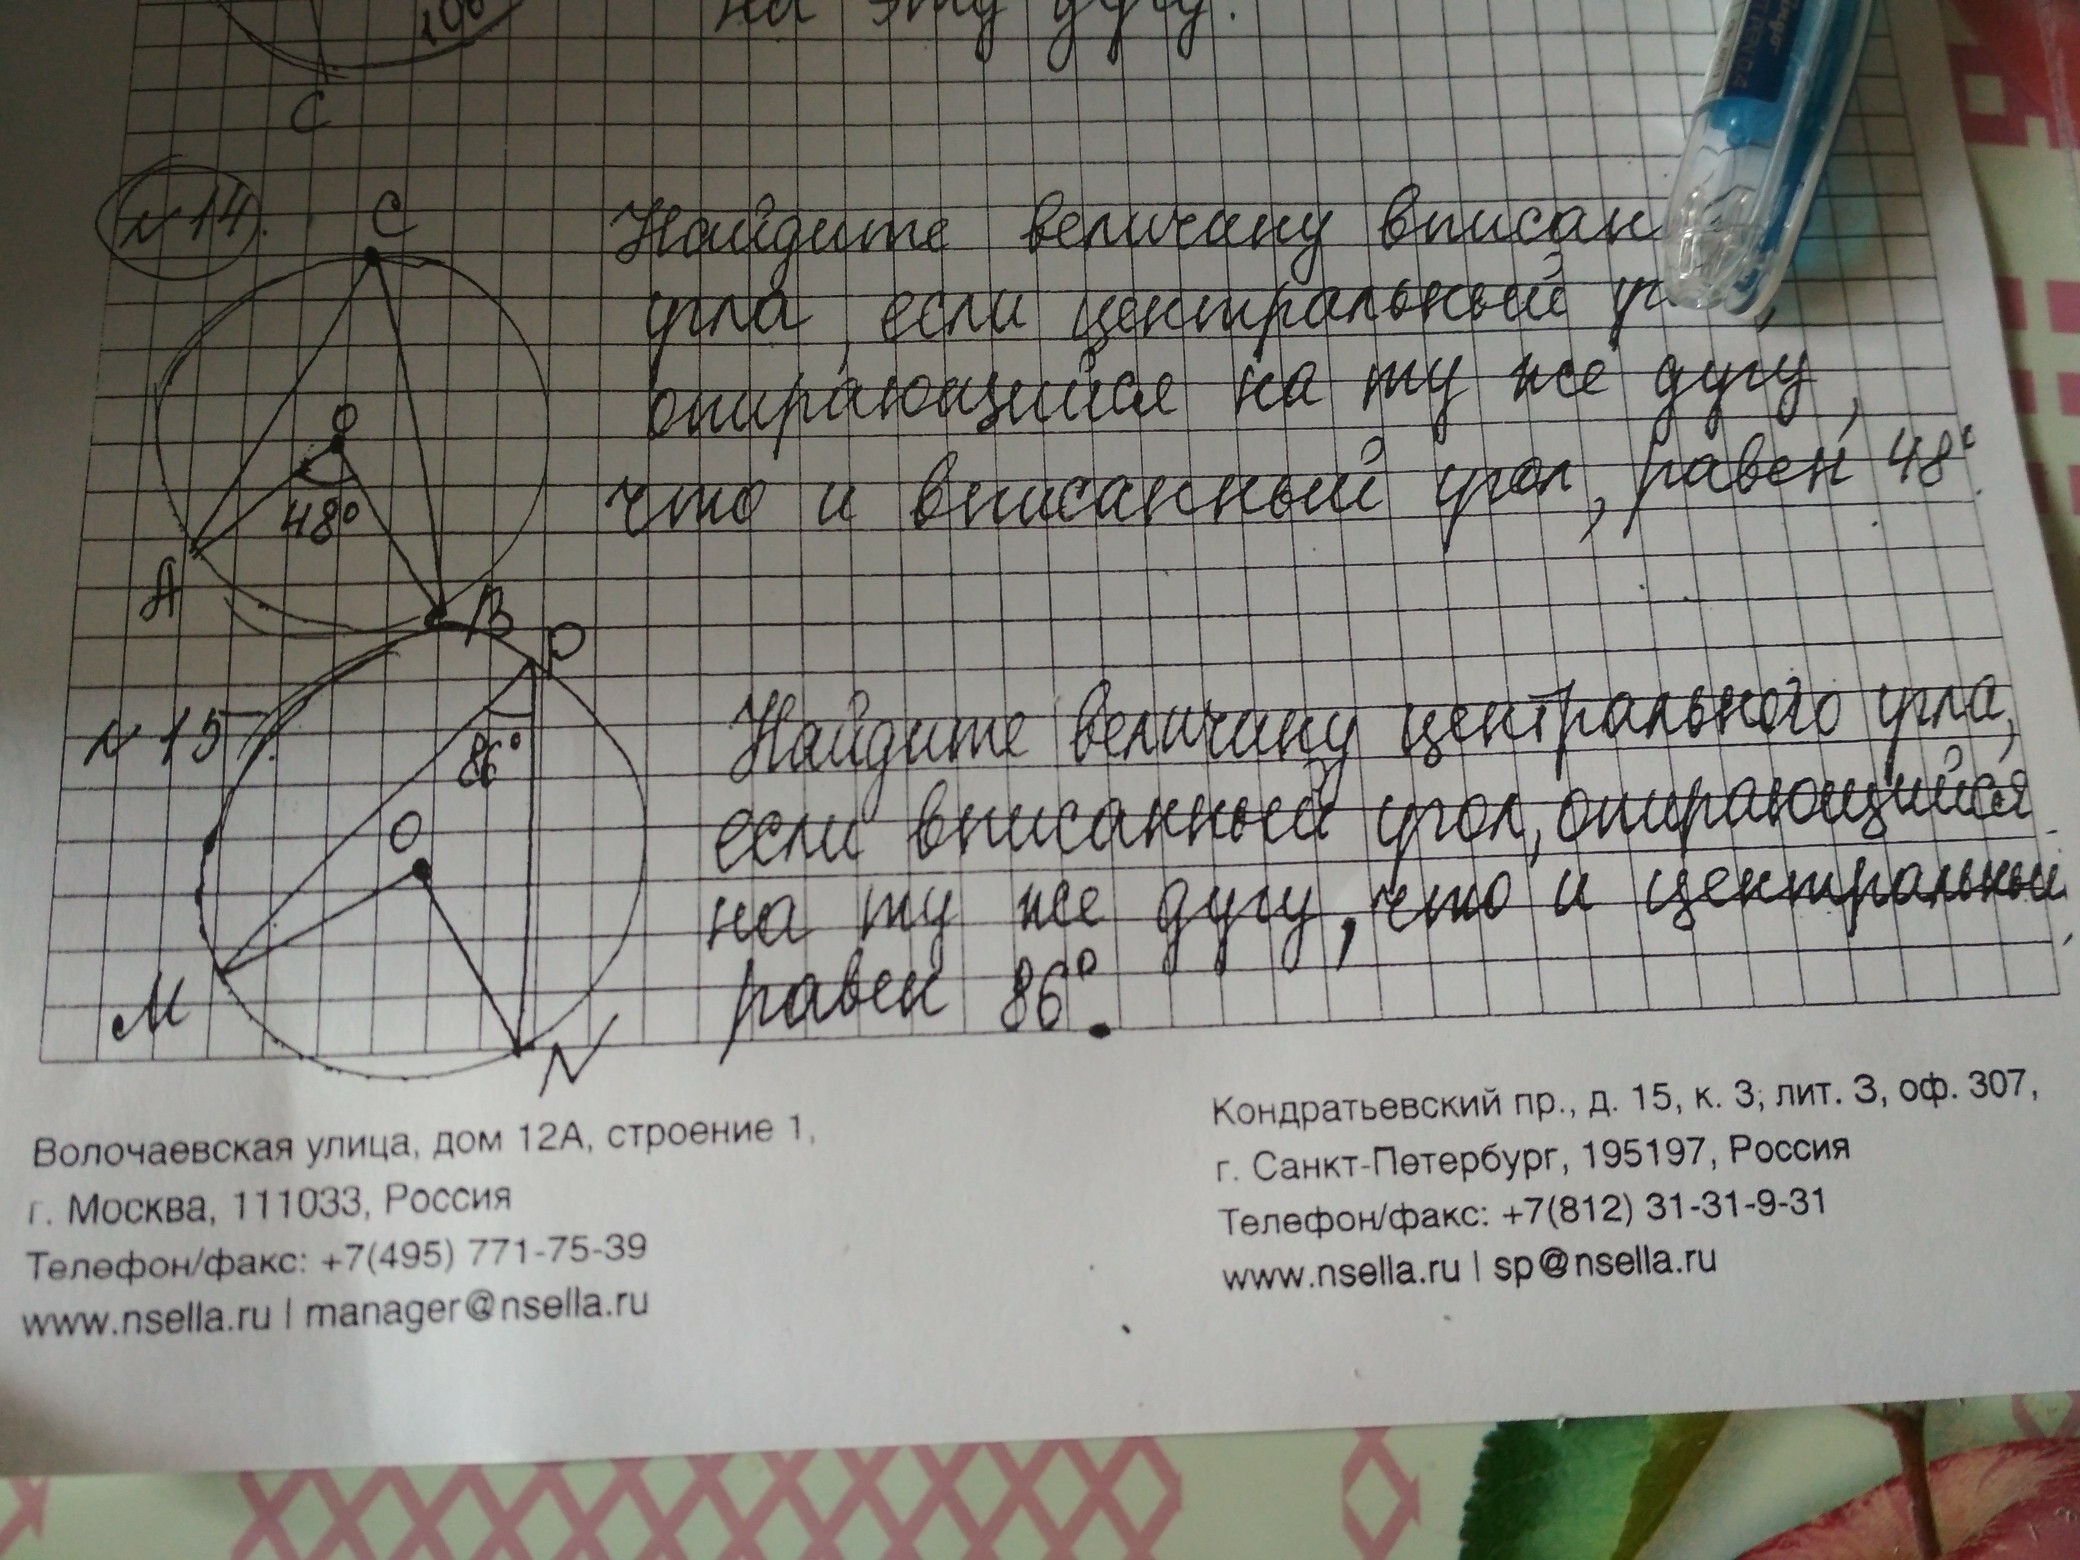 106
на эту дугу.
C
N 14.
C
Найдите величину вписан
угла, если центральный
опирающийся на ту же дугу,
что и вписанный угол, равен 48°.
O
48°
A
B
D
N 15.
86°
O
M
N
Найдите величину центрального угла,
если вписанный угол, опирающийся
на ту же дугу, что и центральный,
равен 86°.
Волочаевская улица, дом 12А, строение 1,
г. Москва, 111033, Россия
Телефон/факс: +7(495) 771-75-39
www.nsella.ru | manager@nsella.ru
Кондратьевский пр., д. 15, к. 3; лит. З, оф. 307,
г. Санкт-Петербург, 195197, Россия
Телефон/факс: +7(812) 31-31-9-31
www.nsella.ru | sp@nsella.ru